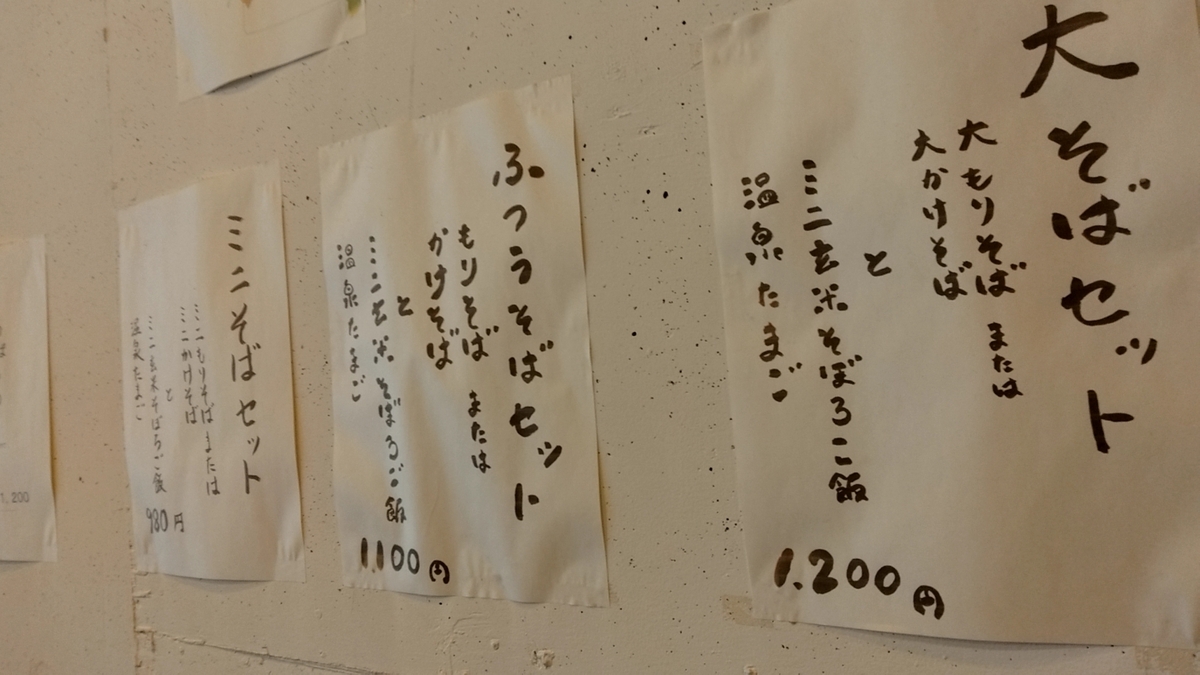 大そばセット
大もりそば または
大かけそば
と
ミニ玄米そぼろご飯
温泉たまご
1.200円
ふつうそばセット
もりそば または
かけそば
と
ミニ玄米そぼろご飯
温泉たまご
1.100円
ミニそばセット
ミニもりそば または
ミニかけそば
と
ミニ玄米そぼろご飯
温泉たまご
980円